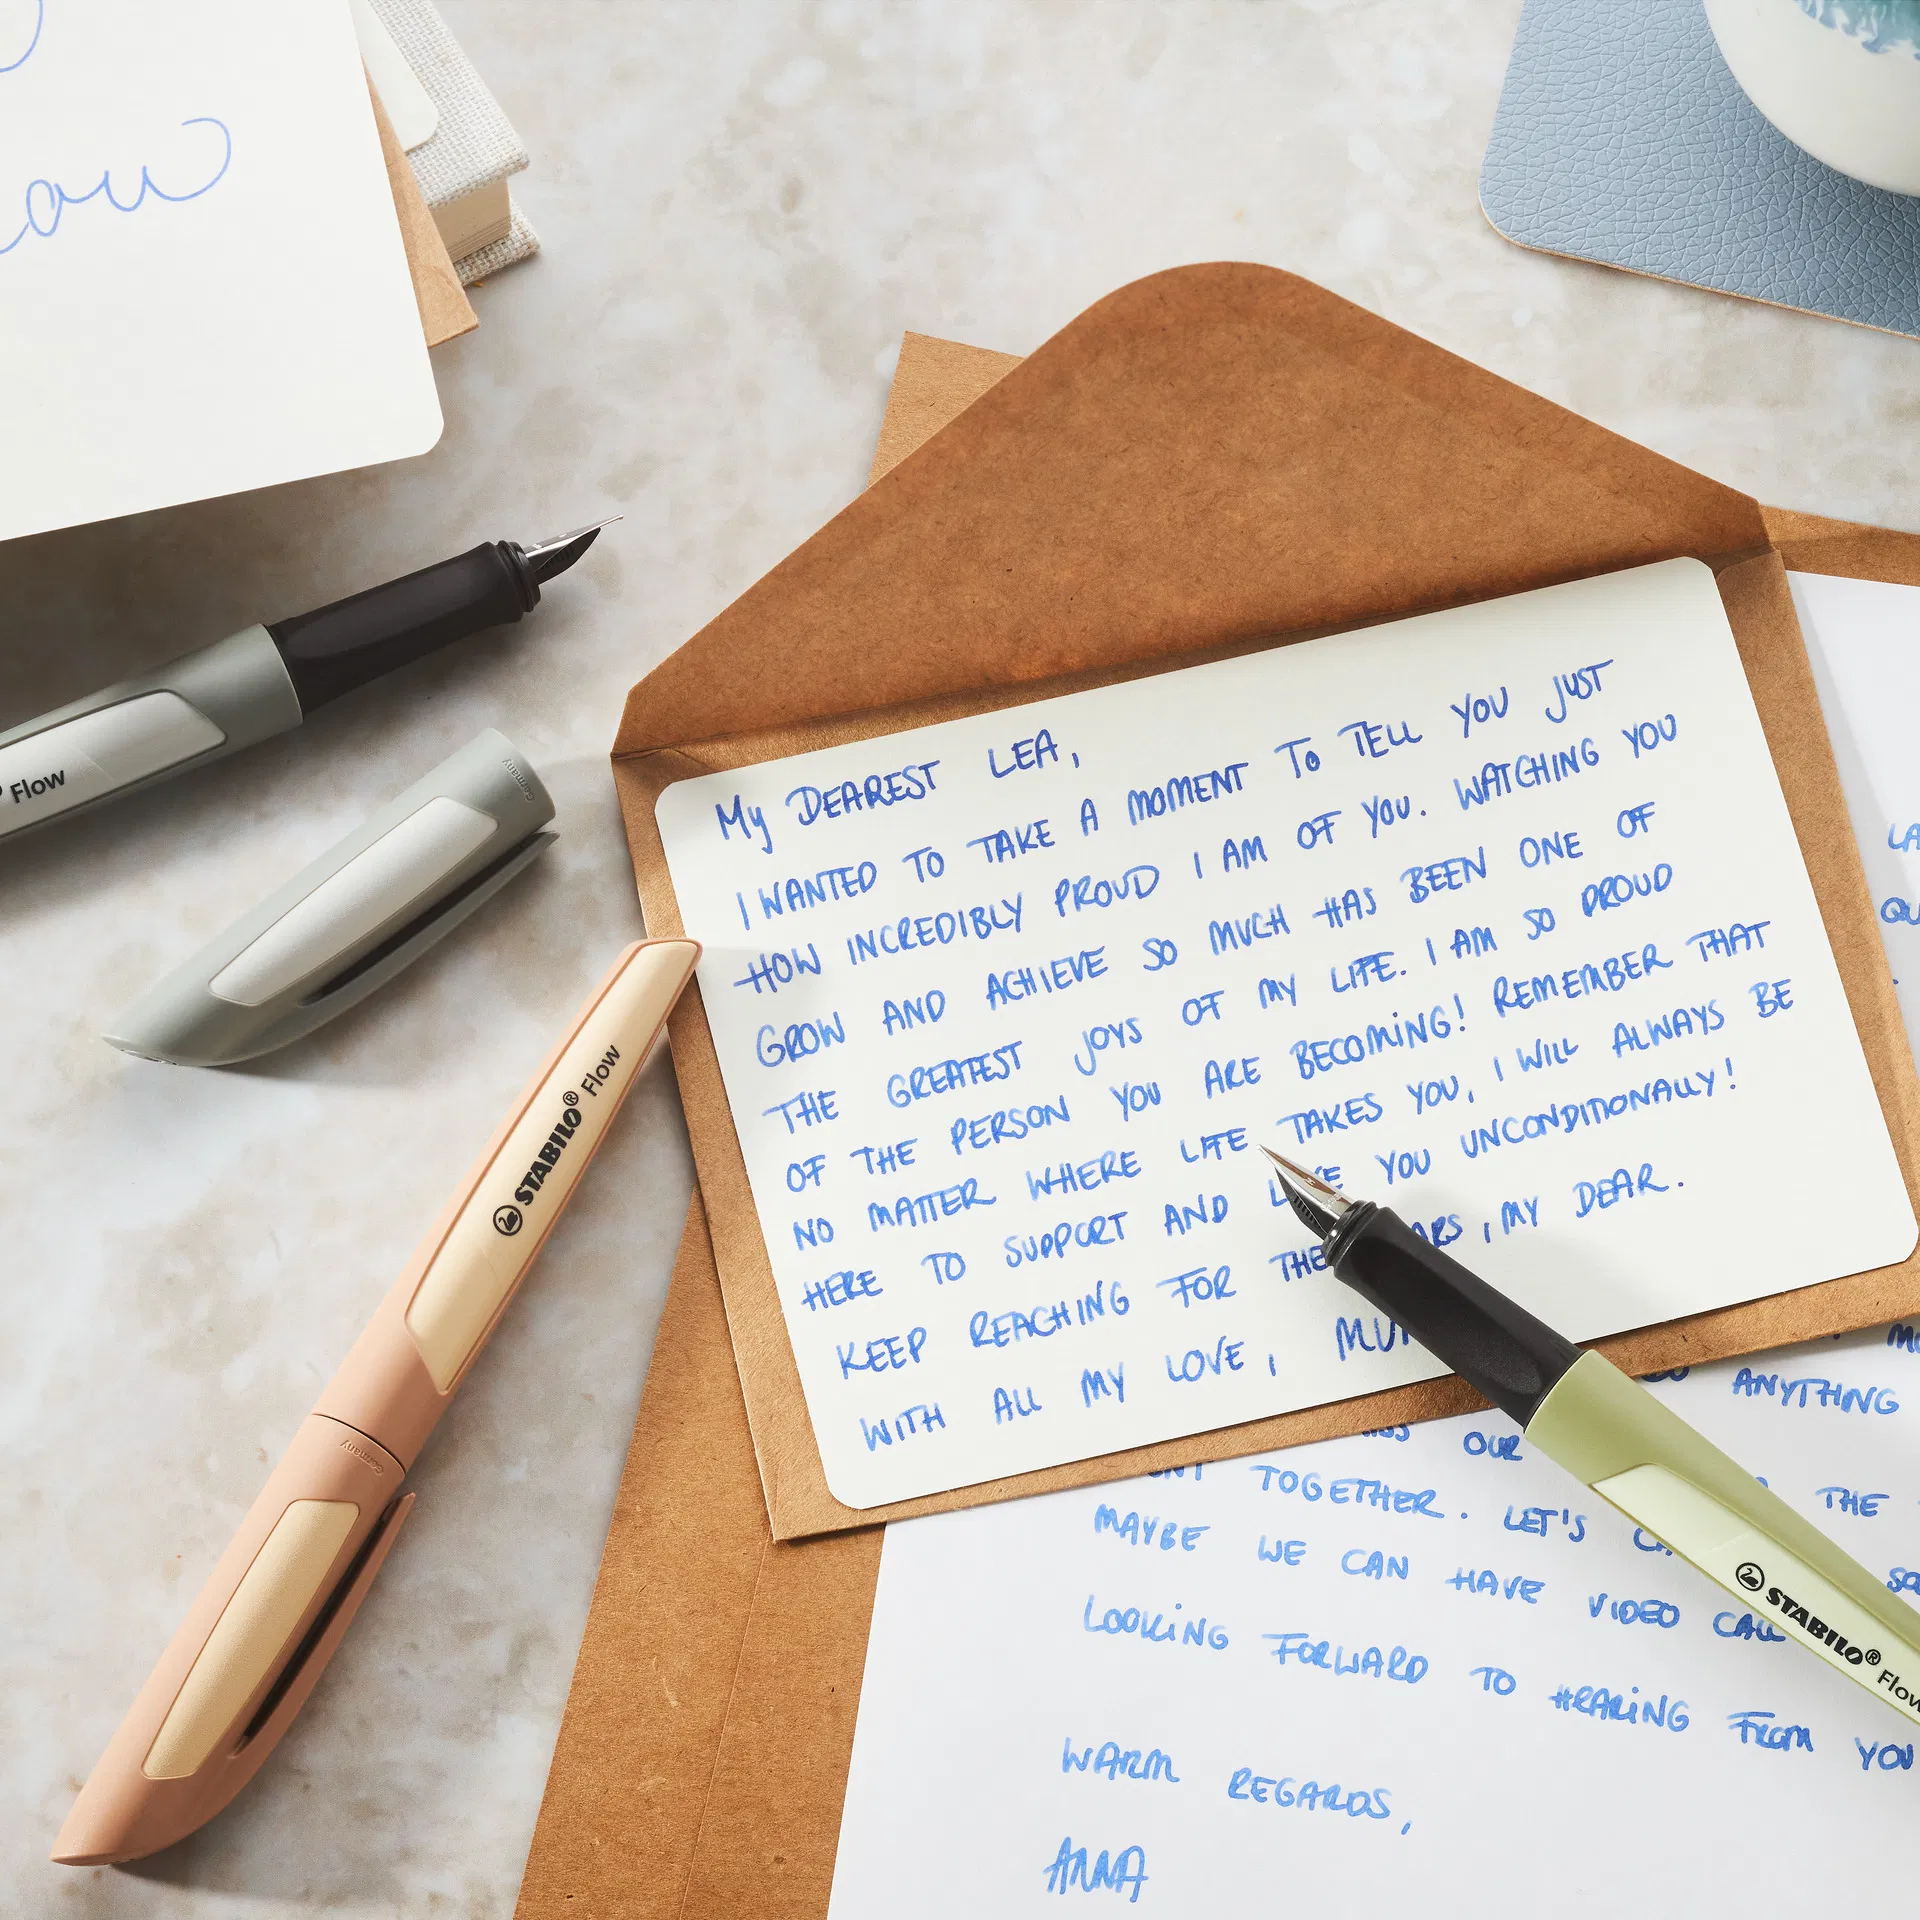 Flow
Germany
STABILO® Flow
Germany
My DEAREST LEA,
I WANTED TO TAKE A MOMENT TO TELL YOU JUST
HOW INCREDIBLY PROUD I AM OF YOU. WATCHING YOU
GROW AND ACHIEVE SO MUCH HAS BEEN ONE OF
THE GREATEST JOYS OF MY LIFE. I AM SO PROUD
OF THE PERSON YOU ARE BECOMING! REMEMBER THAT
NO MATTER WHERE LIFE TAKES YOU, I WILL ALWAYS BE
HERE TO SUPPORT AND YOU UNCONDITIONALLY!
KEEP REACHING FOR THE , MY DEAR.
WITH ALL MY LOVE,
ANYTHING
OUR THE
TOGETHER. LET'S
MAYBE WE CAN HAVE VIDEO CALL
LOOKING FORWARD TO HEARING FROM YOU
WARM REGARDS,
ANNA
STABILO® Flow